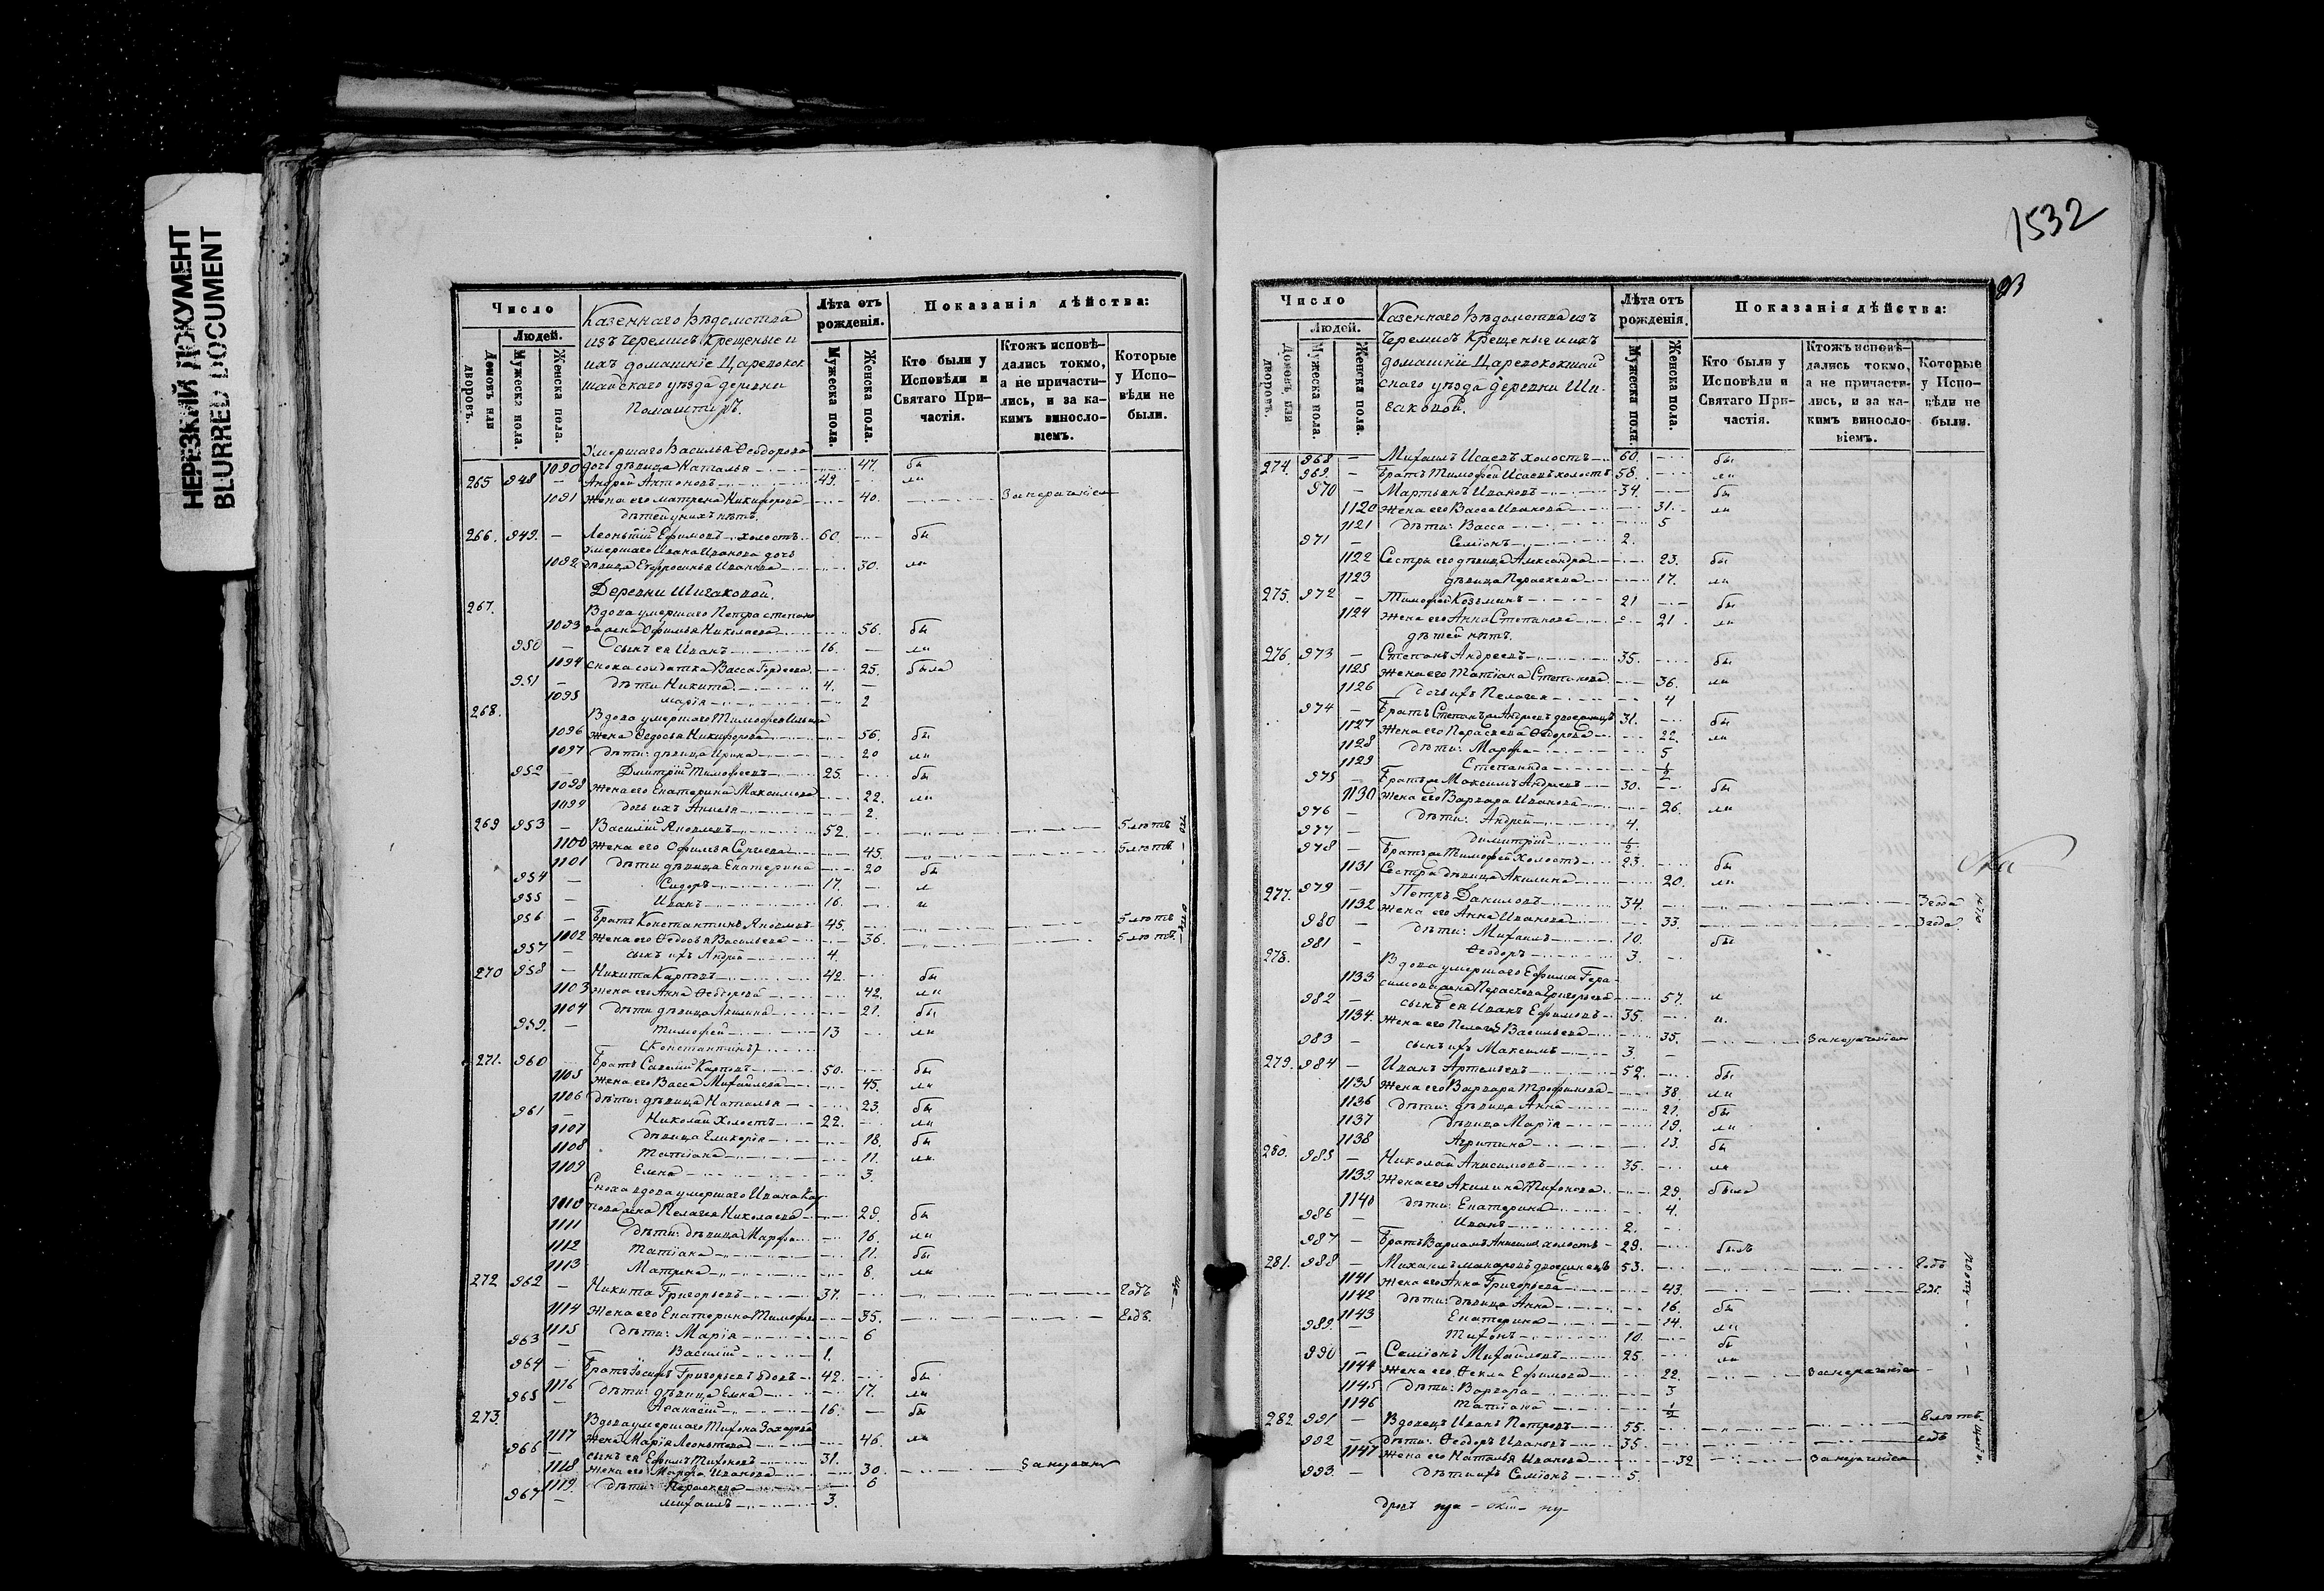 НЕРЕЗКИЙ ДОКУМЕНТ
BLURRED DOCUMENT
Число
Людей.
Домовъ или дворовъ.
Мужеска пола.
Женска пола.
Казеннаго Вѣдомства
изъ Черемисъ Крещеные и
ихъ домашніе Царевокок
шайскаго уѣзда деревни
Лѣта отъ рожденія.
Мужеска пола.
Женска пола.
Показанія дѣйства:
Кто были у Исповѣди и Святаго Причастія.
Ктожъ исповѣдались токмо, а не причастились, и за каким винословіемъ.
Которые у Исповѣди не были.
Умершаго Василья Ѳеодорова
1090 дочь дѣвица Наталья 47. бы
265 948 — Андрей Антоновъ 49. ли
1091 Жена его Матрена Никифорова 40.
дѣтей у нихъ нѣтъ.
266. 949. — Леонтій Ефимовъ холостъ 60. бы
Умершаго Ивана Иванова дочь
1092 дѣвица Евфросинья Иванова 30. ли
Деревни Шигаковой.
267. Вдова умершаго Петра Степано
1093 ва жена Офимья Николаева 56. бы
950 — сынъ ея Иванъ 16. ли
1094 сноха солдатка Васса Гордеева 25. была
951 — дѣти Никита 4.
1095 Марія 2
268. Вдова умершаго Тимофея
1096 жена Ѳедосья Никифорова 56. бы
1097 дѣти: дѣвица Ирина 20 ли
952 — Дмитрій Тимофеевъ 25. бы
1098 Жена его Екатерина Максимова 22. ли
1099 дочь ихъ 2.
269 953 — Василій Яковлевъ 52. 5 лѣтъ
1100 Жена его Офимья Сергеева 45. 5 лѣтъ
1101 дѣти дѣвица Екатерина 20 бы
954 — Сидоръ 17. и
955 — Иванъ 16. и
956 — Братъ Константинъ Яковлевъ 45. 5 лѣтъ
1102 Жена его Ѳедосья Васильева 36. 5 лѣтъ
957 — сынъ ихъ 4.
270 958 — Никита Карповъ 42. бы
1103 Жена его Анна Ѳедорова 42. ли
1104 дѣти дѣвица Акилина 21. бы
959. — Тимофей 13 ли
(Константинъ)
271. 960 Братъ Савелій Карповъ 50. бы
1105 Жена его Васса Михайлова 45. ли
1106 дѣти: дѣвица Наталья 23. бы
961 — Николай холостъ 22. ли
1107 дѣвица 18. бы
1108 Татіана 11. ли
1109 Елена 3.
Сноха вдова умершаго Ивана Кар
1110 пова жена Пелагея Николаева 29. бы
1111 дѣти: дѣвица Марфа 16. ли
1112 Татіана 11. бы
1113 Матрена 8. ли
272 962 — Никита Григорьевъ 37. годъ
1114 Жена его Екатерина 35. годъ
1115 дѣти: Марія 6
963 — Василій 1.
964 — Братъ Іосифъ Григорьевъ вдовъ 42. бы
1116 дѣти: дѣвица Елена 17. ли
965 — Аѳанасій 16. — бы
273. Вдова умершаго Тихона Захарова
1117 жена Марія Леонтьева 46. ли
966 — сынъ ея Ефимъ Тихоновъ 31.
1118 Жена его Марфа Иванова 30.
1119 дѣти: Параскева 6
967 — Михаилъ 3.
1532
Число
Людей.
Домовъ, или дворовъ.
Мужеска пола.
Женска пола.
Казеннаго Вѣдомства изъ
Черемисъ Крещеные и ихъ
домашніе Царевококшай
скаго уѣзда деревни Ши-
гаковой.
Лѣта отъ рожденія.
Мужеска пола.
Женска пола.
Показанія дѣйства:
Кто были у Исповѣди и Святаго Причастія.
Ктожъ исповѣдались токмо, а не причастились, и за каким винословіемъ.
Которые у Исповѣди не были.
274. 968 — Михаилъ Исаевъ холостъ 60. бы
969. — Братъ Тимофей Исаевъ холостъ 58. ли
970 — Мартынъ Ивановъ 34. бы
1120 Жена его Васса Иванова 31. ли
1121 дѣти: Васса 5
971 — Семіонъ 2.
1122 Сестра его дѣвица Александра 23. бы
1123 дѣвица Параскева 17. ли
275. 972 — Тимофей Козьминъ 21 бы
1124 Жена его Анна Степанова 21. ли
дѣтей нѣтъ.
276. 973 — Степанъ Андреевъ 35. бы
1125 Жена его Татіана Степанова 36. ли
1126 дочь ихъ Пелагея 4
974 — Братъ Степанъ Андреевъ 31. бы
1127 Жена его Параскева Ѳедорова 22. ли
1128 дѣти: Марфа 5
1129 Степанида 1/2
975 — Братъ Максимъ Андреевъ 30. бы
1130 Жена его Варвара Иванова 26. ли
976 — дѣти: Андрей 4.
977 — Димитрій 1/2
978 — Братъ Тимофей холостъ 23. бы
1131 Сестра дѣвица Акилина 20. ли
277. 979 — Петръ Даниловъ 34. 3 года
1132 Жена его Анна Иванова 33. 3 года
980 — дѣти: Михаилъ 10. бы
981 — Ѳеодоръ 3.
278. Вдова умершаго Ефима Гера
1133 симова жена Параскева Григорьева 57. и
982 — сынъ ея Иванъ Ефимовъ 35. и
1134. Жена его Пелагея Васильева 35.
983 — сынъ ихъ Максимъ 3.
279. 984 — Иванъ Артемьевъ 52. бы
1135 Жена его Варвара Трофимова 38. ли
1136 дѣти: дѣвица Анна 21. бы
1137 дѣвица Марія 19. ли
1138 Агрипина 13. бы
280. 985 — Николай Анисимовъ 35. ли
1139. Жена его Акилина Тихонова 29. была
1140 дѣти: Екатерина 4.
986 — Иванъ 2.
987 — Братъ Варламъ холостъ 29. былъ
281. 988 — Михаилъ Макаровъ 53. годъ
1141 Жена его Анна Григорьева 43. годъ
1142 дѣти: дѣвица Анна 16. бы
1143 Екатерина 14. ли
989. — Тихонъ 10. бы
990 — Семіонъ Михайловъ 25. ли
1144 Жена его Ѳекла Ефимова 22.
1145 дѣти: Варвара 3
1146 Татіана 1/2
282 991 — Вдовецъ Иванъ Петровъ 55.
992 — дѣти: Ѳеодоръ Ивановъ 35.
1147 Жена его Наталья Иванова 32
993. — дѣти ихъ Семіонъ 5.